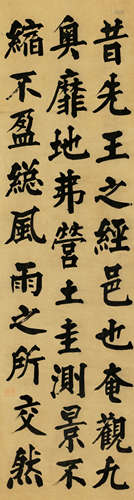 昔先王之經邑也奄觀九
奧靡地弗營土圭測景不
縮不盈緫風雨之所交然